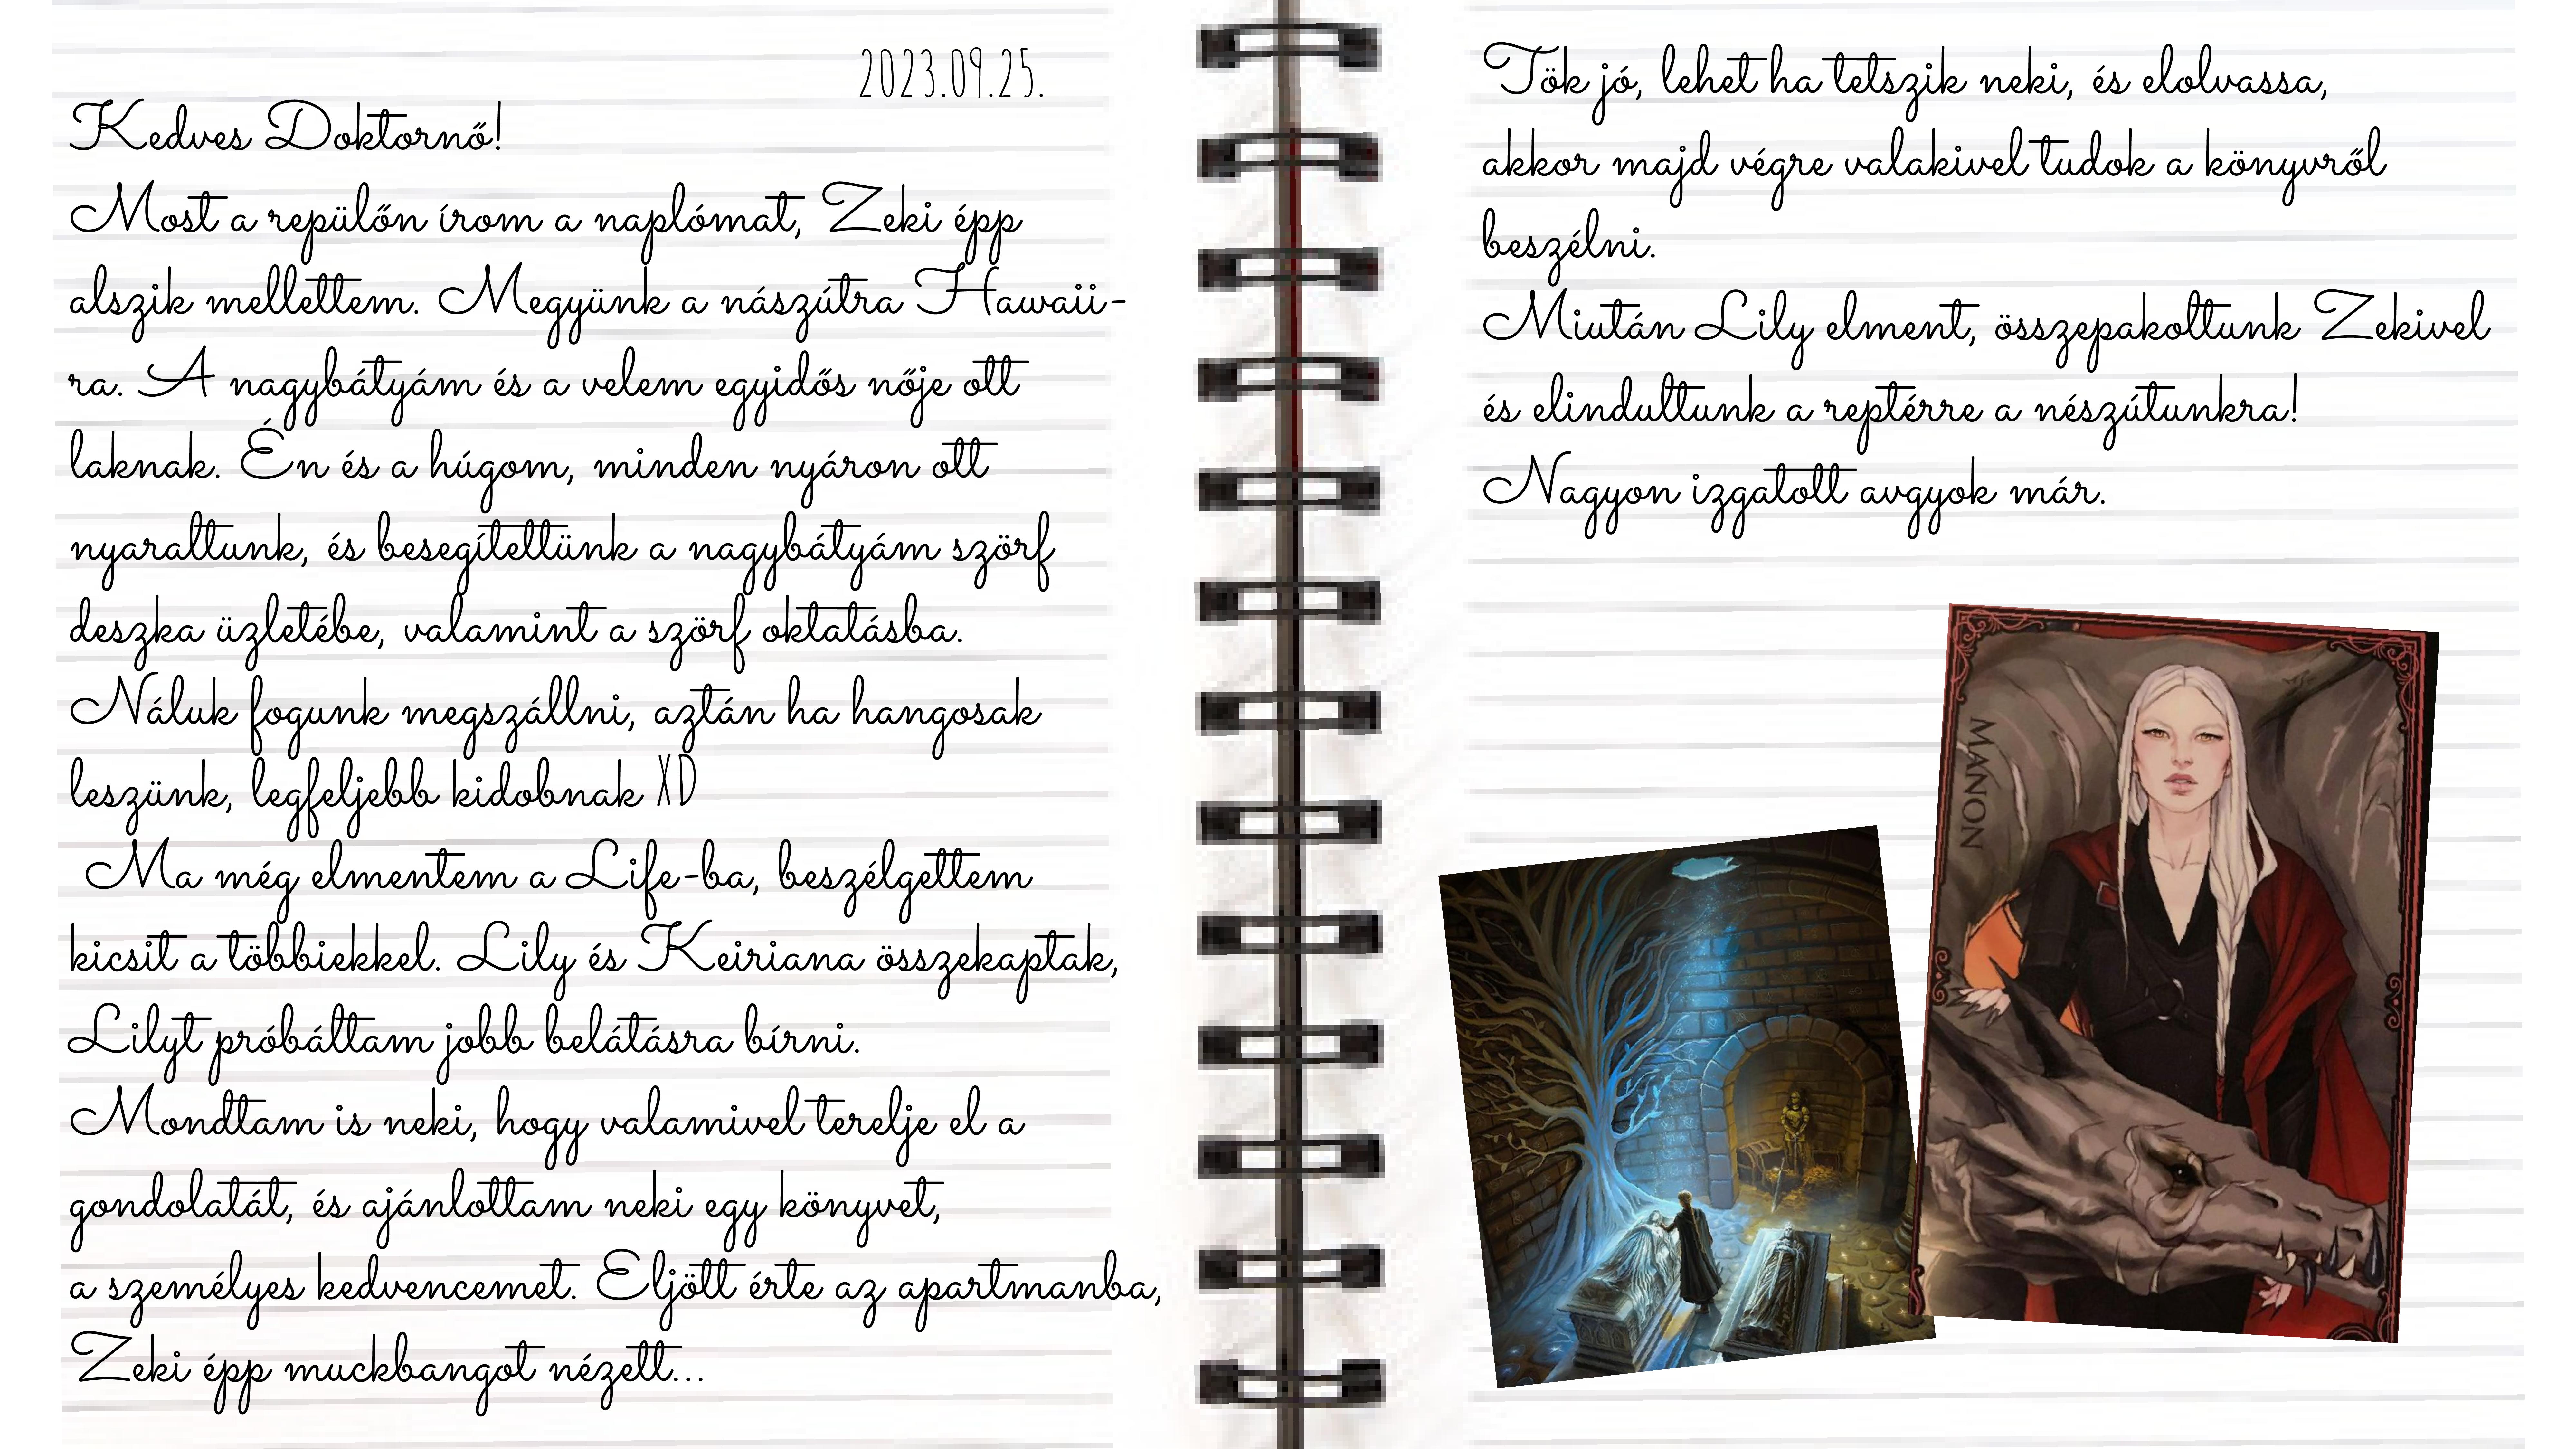 2023.09.25.
Kedves Doktornő!
Most a repülőn írom a naplómat, Zeki épp
alszik mellettem. Megyünk a nászútra Hawaii-
ra. A nagybátyám és a velem egyidős nője ott
laknak. Én és a húgom, minden nyáron ott
nyaraltunk, és besegítettünk a nagybátyám szörf
deszka üzletébe, valamint a szörf oktatásba.
Náluk fogunk megszállni, aztán ha hangosak
leszünk, legfeljebb kidobnak XD
Ma még elmentem a Life-ba, beszélgettem
kicsit a többiekkel. Lily és Keiriana összekaptak,
Lilyt próbáltam jobb belátásra bírni.
Mondtam is neki, hogy valamivel terelje el a
gondolatát, és ajánlottam neki egy könyvet,
a személyes kedvencemet. Eljött érte az apartmanba,
Zeki épp muckbangot nézett...
Tök jó, lehet ha tetszik neki, és elolvassa,
akkor majd végre valakivel tudok a könyvről
beszélni.
Miután Lily elment, összepakoltunk Zekivel
és elindultunk a reptérre a nészútunkra!
Nagyon izgatott avgyok már.
MANON